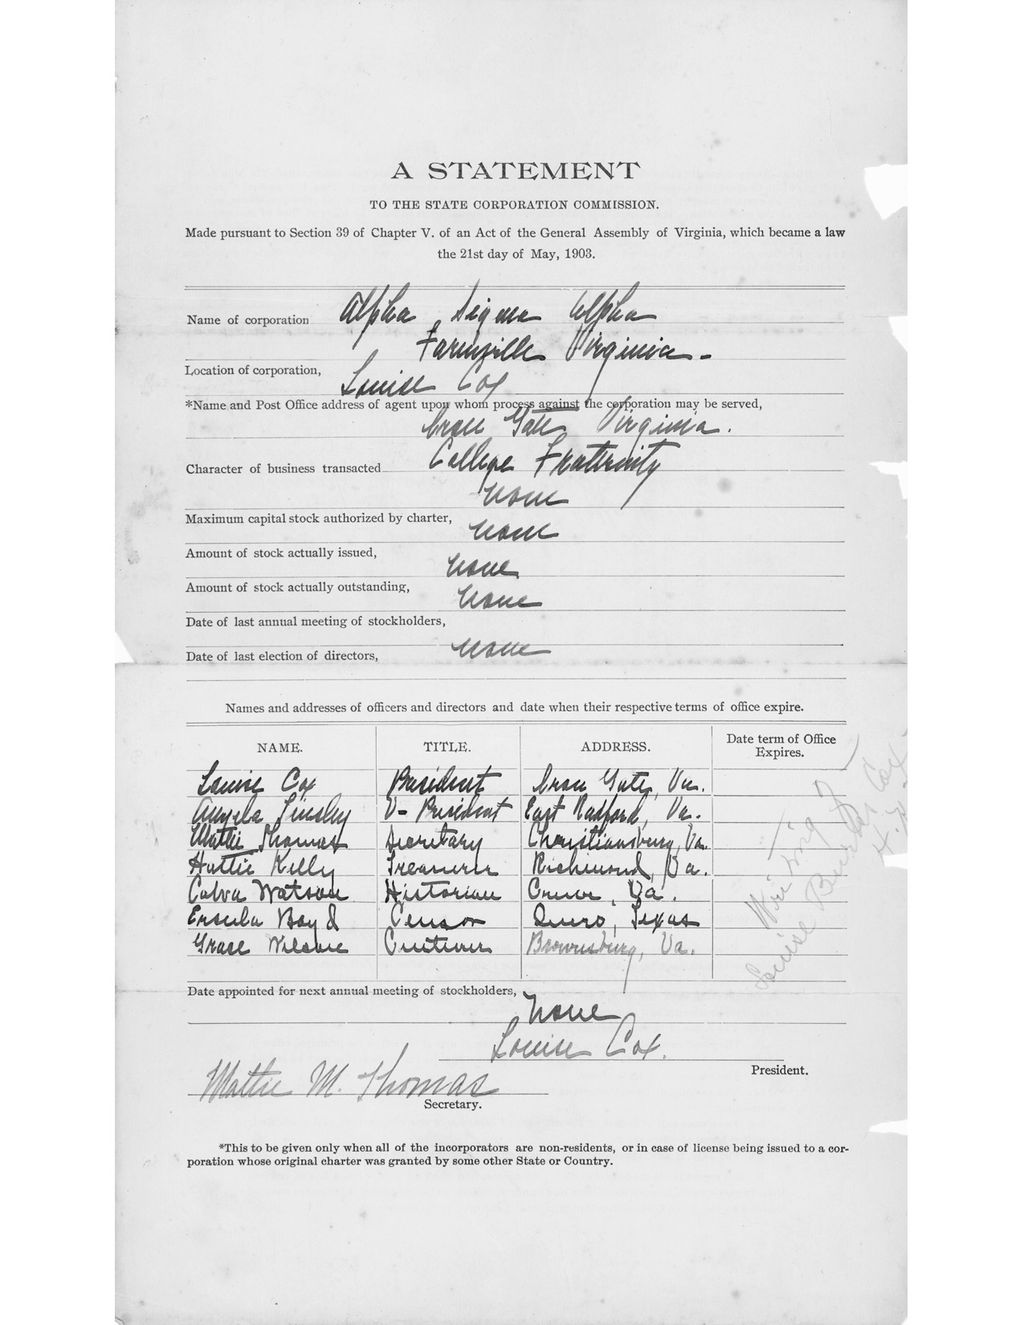 A STATEMENT
TO THE STATE CORPORATION COMMISSION.
Made pursuant to Section 39 of Chapter V. of an Act of the General Assembly of Virginia, which became a law
the 21st day of May, 1903.
Name of corporation Alpha Sigma Alpha
Farmville Virginia -
Location of corporation,
Louise Cox
*Name and Post Office address of agent upon whom process against the corporation may be served,
Gate Virginia.
Character of business transacted College Fraternity
None
Maximum capital stock authorized by charter,
None
Amount of stock actually issued,
None
Amount of stock actually outstanding,
None
Date of last annual meeting of stockholders,
None
Date of last election of directors,
Names and addresses of officers and directors and date when their respective terms of office expire.
NAME. TITLE. ADDRESS. Date term of Office Expires.
Louise Cox President Gate, Va.
Tinsley V- President East Radford, Va.
Mattie Thomas Secretary Christiansburg, Va.
Hattie Kelly Treasurer Richmond, Va.
Calva Watson Historian Va.
Boyd Censor Texas
Grace Brownsburg, Va.
Date appointed for next annual meeting of stockholders,
None
Louise Cox.
President.
Mattie M. Thomas
Secretary.
*This to be given only when all of the incorporators are non-residents, or in case of license being issued to a cor-
poration whose original charter was granted by some other State or Country.
Writing
Louise Cox